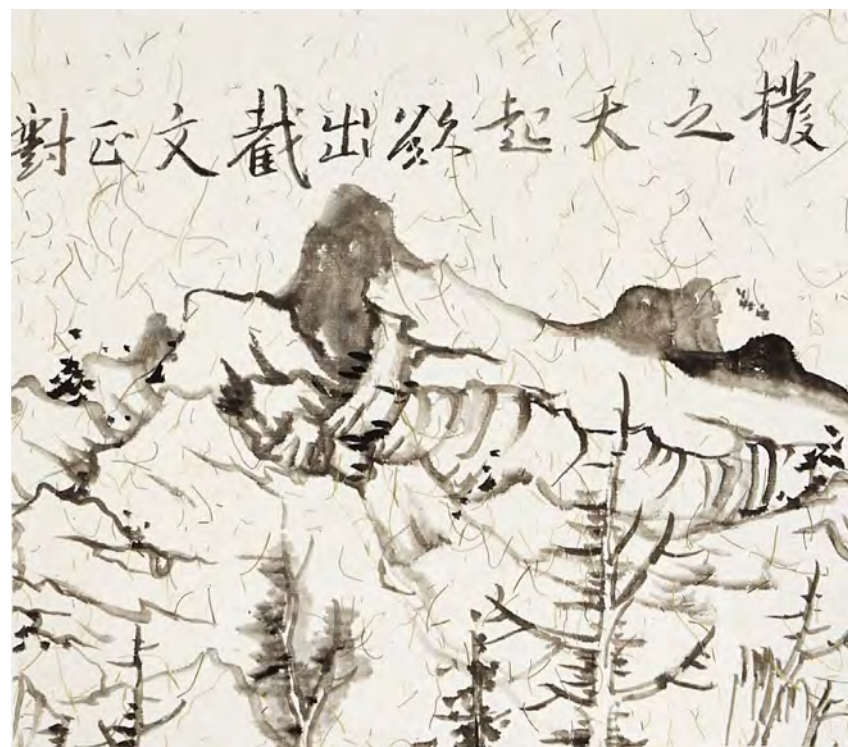 撥之天起欲出截文正對